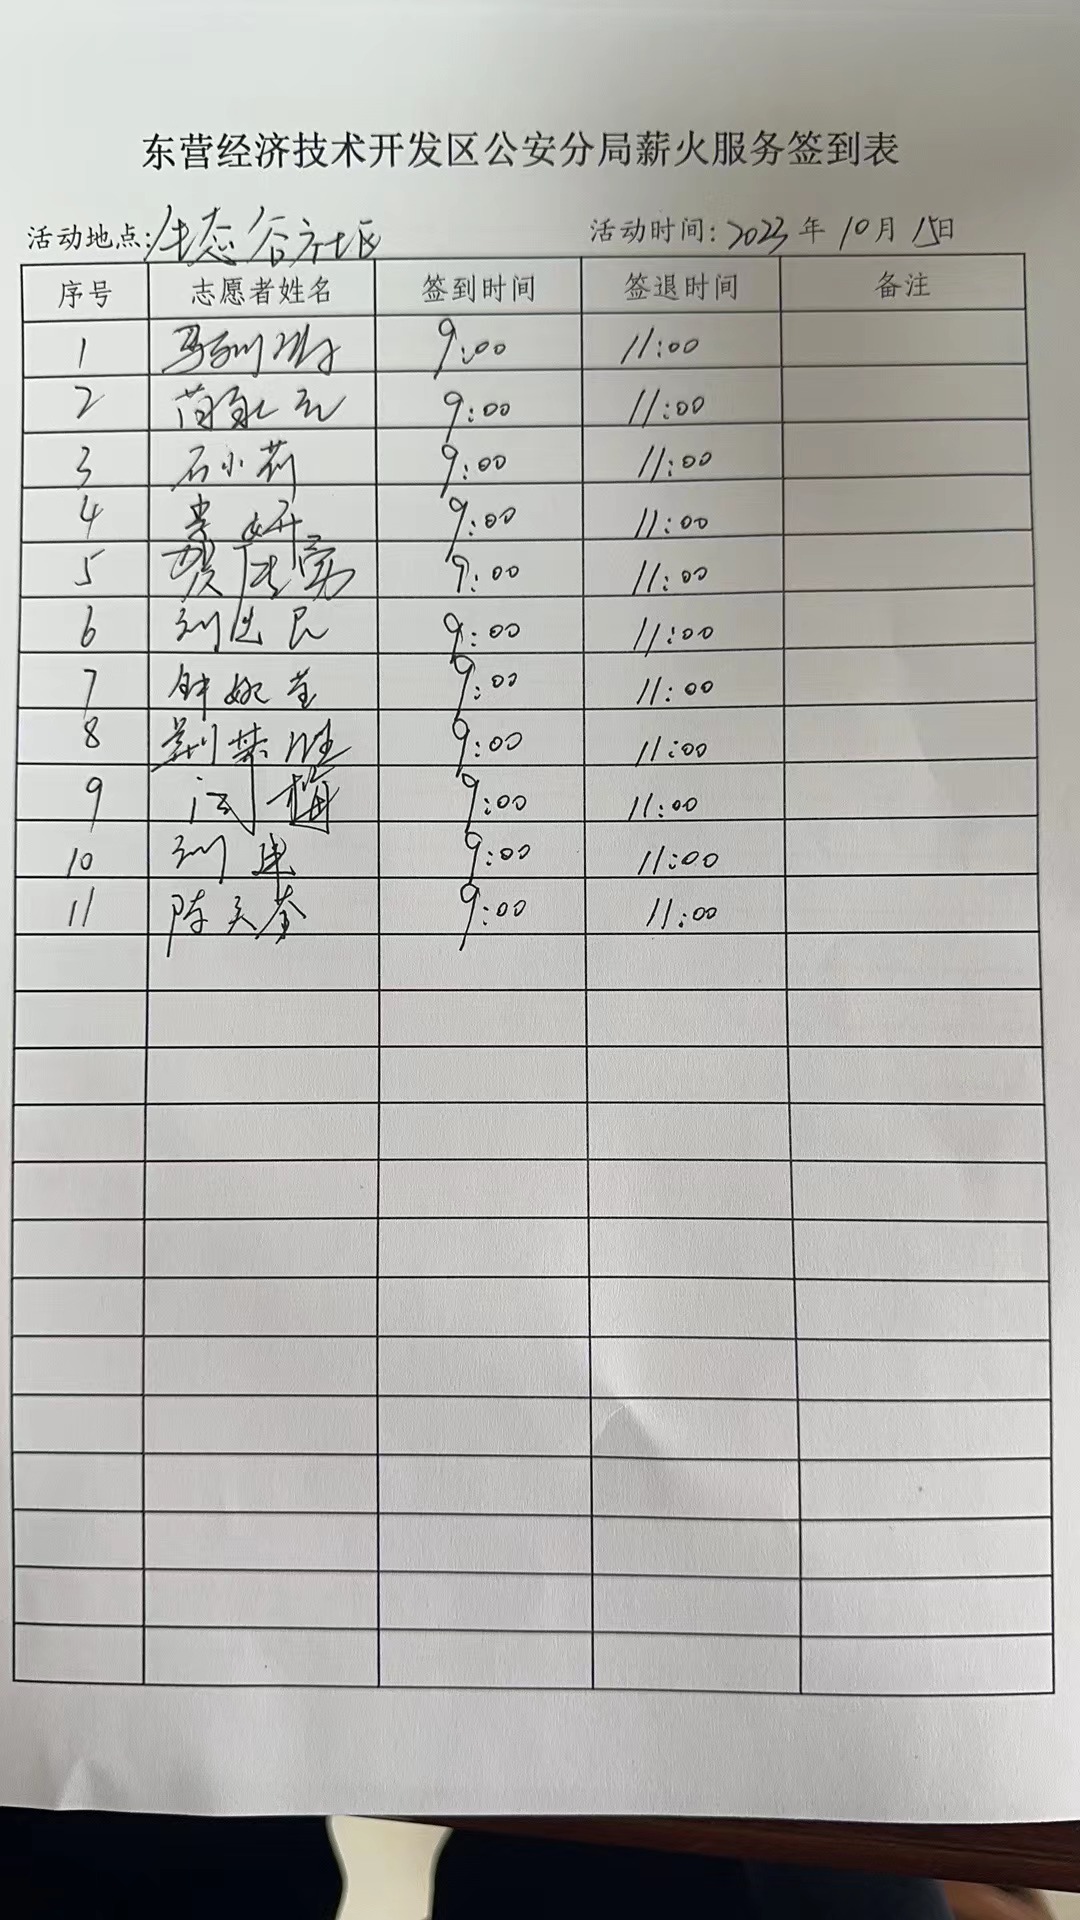 东营经济技术开发区公安分局薪火服务签到表
活动地点:生态谷社区 活动时间:2023年10月15日
序号 志愿者姓名 签到时间 签退时间 备注
1 9:00 11:00
2 9:00 11:00
3 石小莉 9:00 11:00
4 9:00 11:00
5 贺 9:00 11:00
6 刘 民 9:00 11:00
7 钟婉莹 9:00 11:00
8 荆荣胜 9:00 11:00
9 闫梅 9:00 11:00
10 刘建 9:00 11:00
11 陈 9:00 11:00